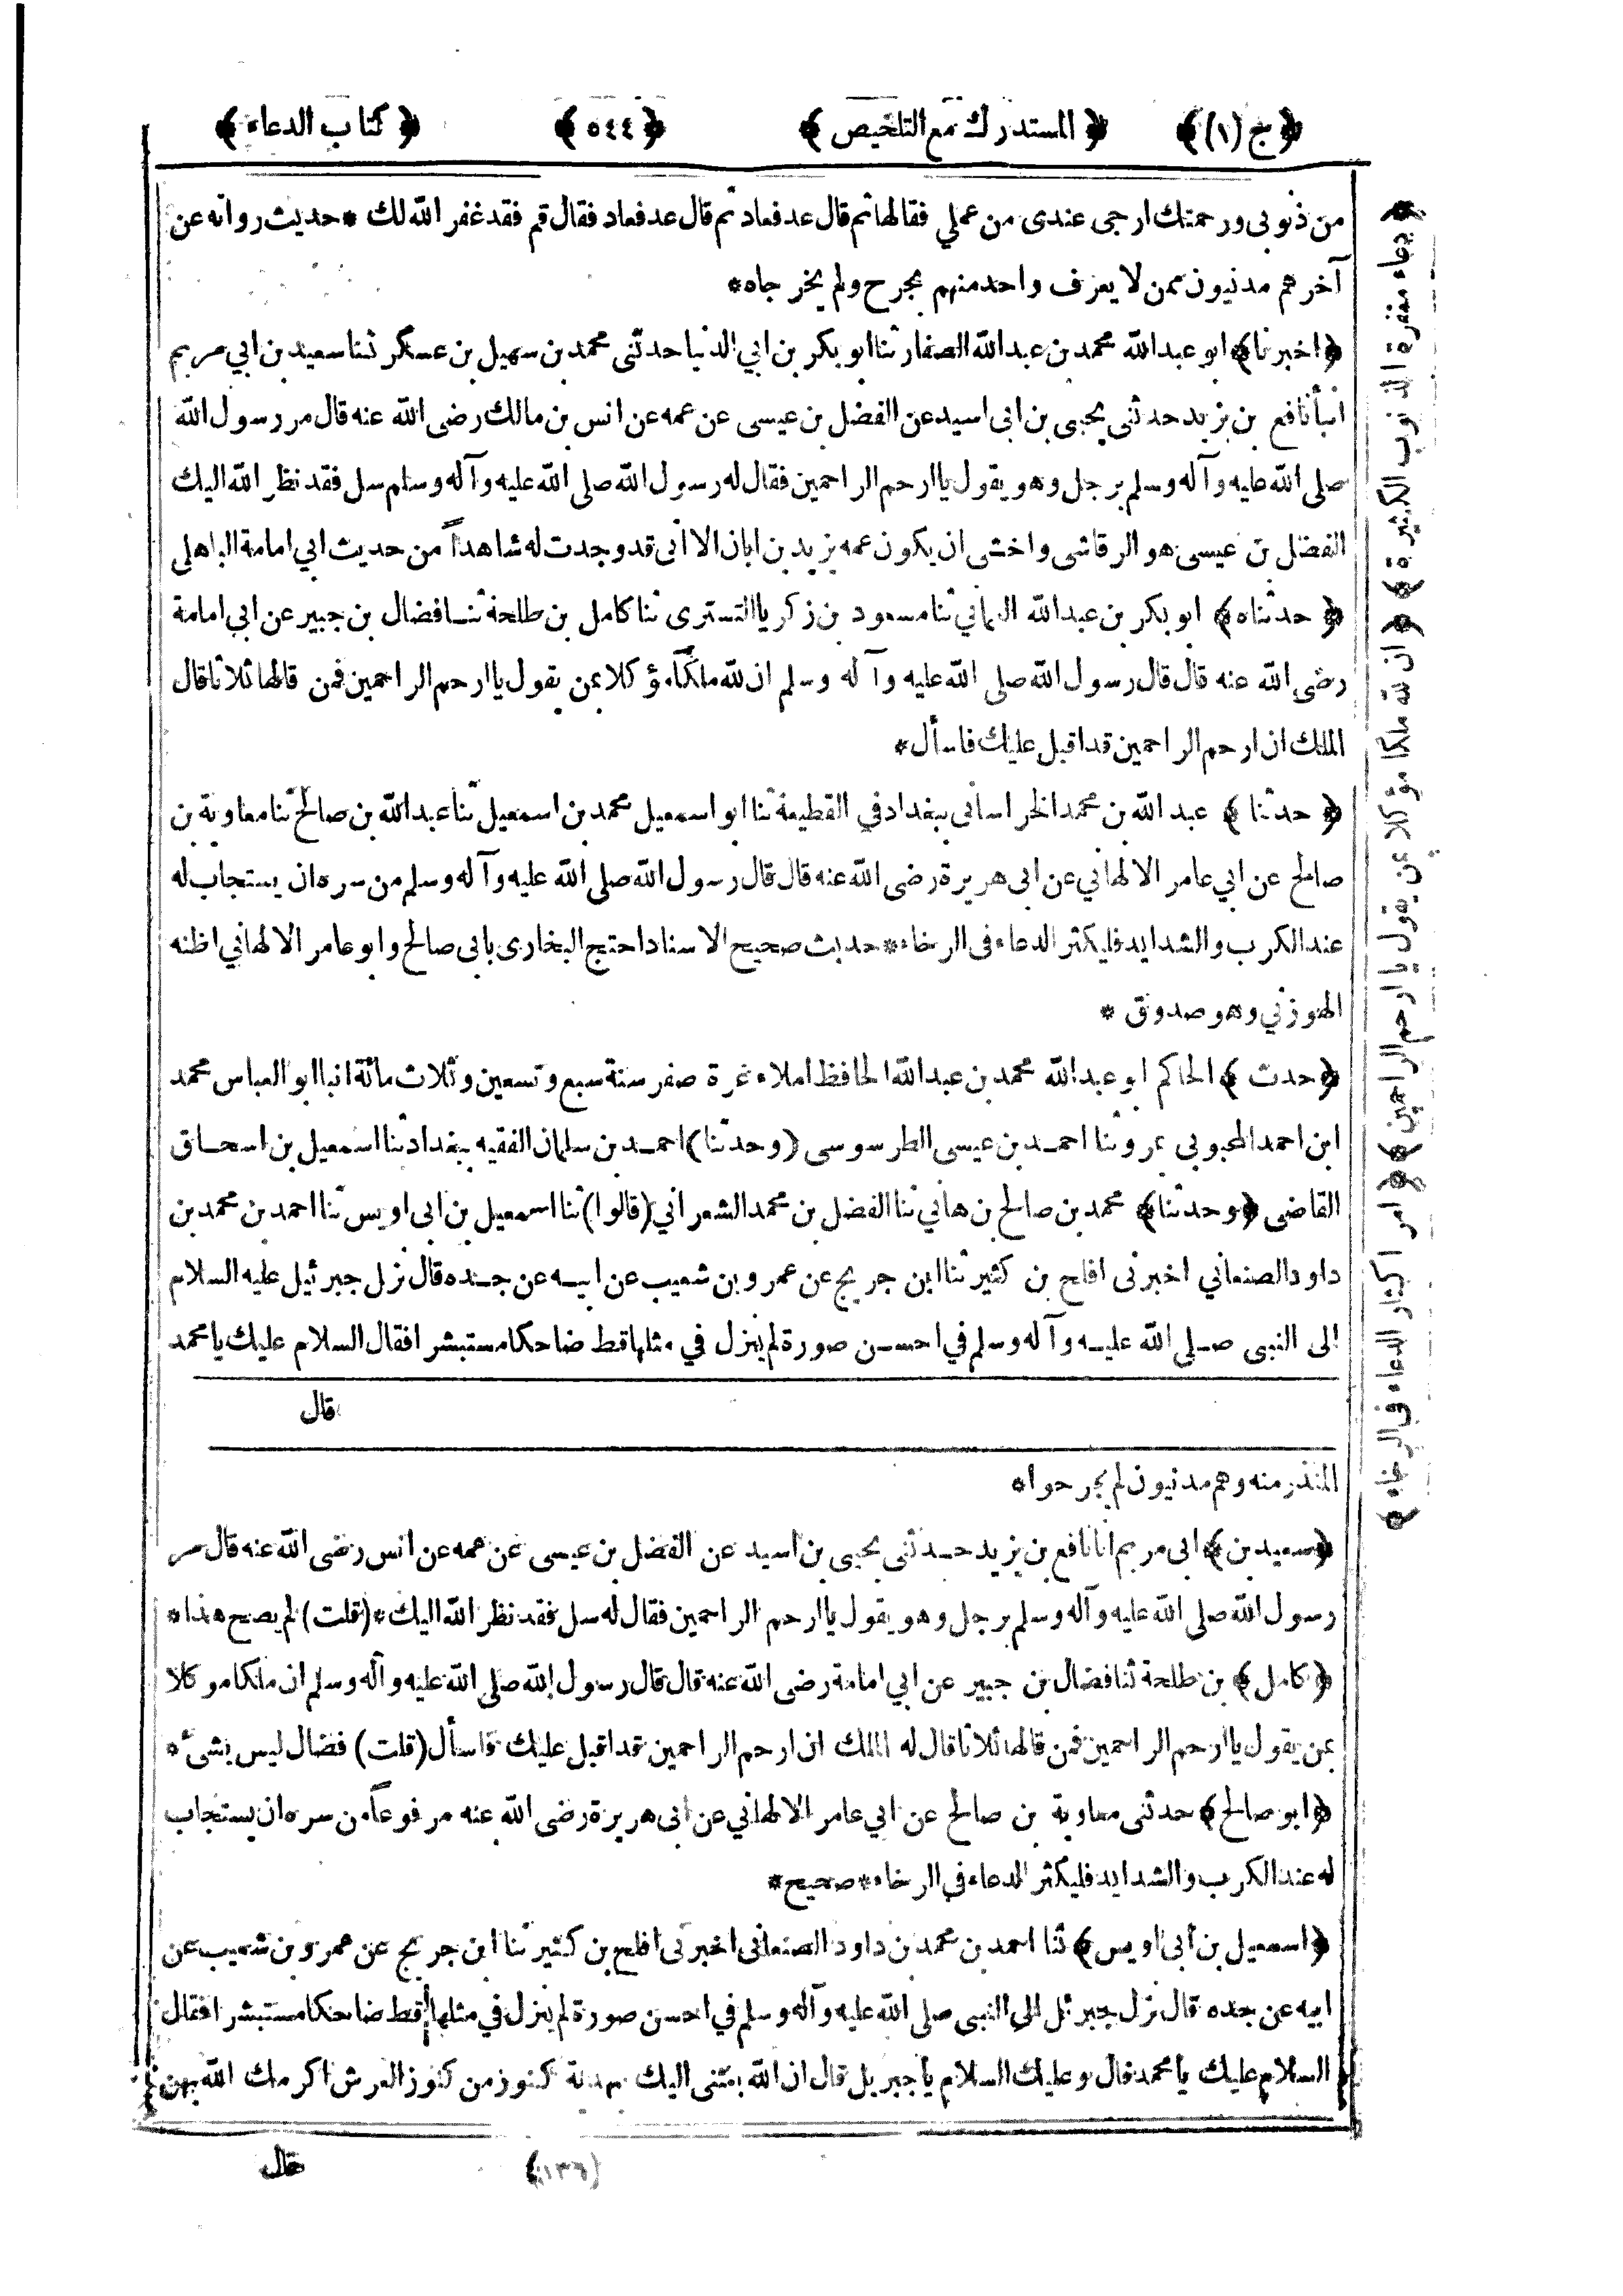 ﴿ ج (١) ﴾ ﴿ المستدرك مع التلخيص ﴾ ﴿ ٥٤٤ ﴾ ﴿ كتاب الدعاء ﴾
من ذنوبى ورحمتك ارجى عندى من عملي فقالها ثم قال عد فعاد ثم قال عد فعاد فقال قم فقد غفر الله لك * حديث رواته عن
آخرهم مدنيون ممن لا يعرف واحد منهم بجرح ولم يخرجاه*
﴿ اخبرنا ﴾ ابو عبدالله محمد بن عبدالله الصفار ثنا ابو بكر بن ابي الدنيا حدثنى محمد بن سهيل بن عسكر ثنا سعيد بن ابي مريم
انبأ نافع بن يزيد حدثنى يحيى بن ابى اسيد عن الفضل بن عيسى عن عمه عن انس بن مالك رضى الله عنه قال مر رسول الله
صلى الله عليه وآله وسلم برجل وهو يقول ياارحم الراحمين فقال له رسول الله صلى الله عليه وآله وسلم سل فقد نظر الله اليك
الفضل بن عيسى هو الرقاشى واخشى ان يكون عمه يزيد بن ابان الا انى قد وجدت له شاهداً من حديث ابي امامة الباهلى
﴿ حدثناه ﴾ ابو بكر بن عبدالله ثنا مسعود بن زكريا التسترى ثنا كامل بن طلحة ثنا فضال بن جبير عن ابى امامة
رضى الله عنه قال قال رسول الله صلى الله عليه وآله وسلم ان لله ملكاً مؤكلا بمن يقول ياارحم الراحمين فمن قالها ثلاثا قال
الملك ان ارحم الراحمين قد اقبل عليك فاسأل*
﴿ حدثنا ﴾ عبد الله بن محمد الخراسانى ببغداد في القطيعة ثنا ابو اسمعيل محمد بن اسمعيل ثنا عبدالله بن صالح ثنا معاوية بن
صالح عن ابي عامر الالهاني عن ابى هريرة رضى الله عنه قال قال رسول الله صلى الله عليه وآله وسلم من سره ان يستجاب له
عند الكرب والشدايد فليكثر الدعاء فى الرخاء* حديث صحيح الاسناد احتج البخارى بابى صالح وابو عامر الالهاني اظنه
الهوزني وهو صدوق *
﴿ حدث ﴾ الحاكم ابو عبدالله محمد بن عبدالله الحافظ املاء غرة صفر سنة سبع وتسعين وثلاث مائة انبا ابو العباس محمد
ابن احمد المحبوبى بمرو ثنا احمد بن عيسى الطرسوسى (وحدثنا) احمد بن سلمان الفقيه ببغداد ثنا اسمعيل بن اسحاق
القاضى ﴿ وحدثنا ﴾ محمد بن صالح بن هاني ثنا الفضل بن محمد الشعراني (قالوا) ثنا اسمعيل بن ابى اويس ثنا احمد بن محمد بن
داود الصنعاني اخبرنى افلح بن كثير ثنا ابن جريج عن عمرو بن شعيب عن ابيه عن جده قال نزل جبرئيل عليه السلام
الى النبى صلى الله عليه وآله وسلم في احسن صورة لم ينزل في مثلها قط ضاحكا مستبشرا فقال السلام عليك يا محمد
قال
المنذر منه وهم مدنيون لم يجرحوا*
﴿ سعيد بن ﴾ ابى مريم انا نافع بن يزيد حدثنى يحيى بن اسيد عن الفضل بن عيسى عن عمه عن انس رضى الله عنه قال مر
رسول الله صلى الله عليه وآله وسلم برجل وهو يقول ياارحم الراحمين فقال له سل فقد نظر الله اليك * (قلت) لم يصح هذا*
﴿ كامل ﴾ بن طلحة ثنا فضال بن جبير عن ابي امامة رضى الله عنه قال قال رسول الله صلى الله عليه وآله وسلم ان ملكا موكلا
بمن يقول ياارحم الراحمين فمن قالها ثلاثا قال له الملك ان ارحم الراحمين قد اقبل عليك فاسأل (قلت) فضال ليس بشئ *
﴿ ابو صالح ﴾ حدثنى معاوية بن صالح عن ابي عامر الالهاني عن ابى هريرة رضى الله عنه مرفوعاً من سره ان يستجاب
له عند الكرب والشدايد فليكثر الدعاء في الرخاء* صحيح*
﴿ اسمعيل بن ابى اويس ﴾ ثنا احمد بن محمد بن داود الصنعانى اخبرنى افلح بن كثير ثنا ابن جريج عن عمرو بن شعيب عن
ابيه عن جده قال نزل جبرئل الى النبى صلى الله عليه وآله وسلم في احسن صورة لم ينزل في مثلها قط ضاحكا مستبشرا فقال
السلام عليك يا محمد قال وعليك السلام يا جبريل قال ان الله بعثنى اليك بهدية كنوز من كنوز العرش اكرمك الله بهن
(١٣٦) قال
﴿ دعاء مغفرة الذنوب الكثيرة ﴾ ﴿ ان لله ملكا مؤكلا بمن يقول يا ارحم الراحمين ﴾ ﴿ امر اكثار الدعاء فى الرخاء ﴾